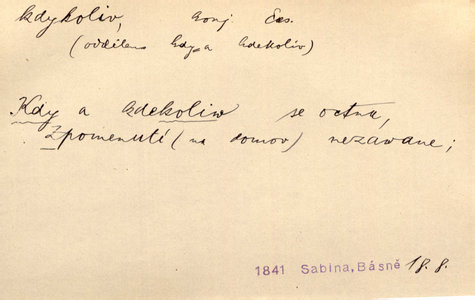 kdykoliv, konj. čas.
(odděleno kdy a kdekoliv)
Kdy a kdekoliv se octnu,
Zpomenutí (na domov) nezawane;
1841 Sabina, Básně 18. 8.